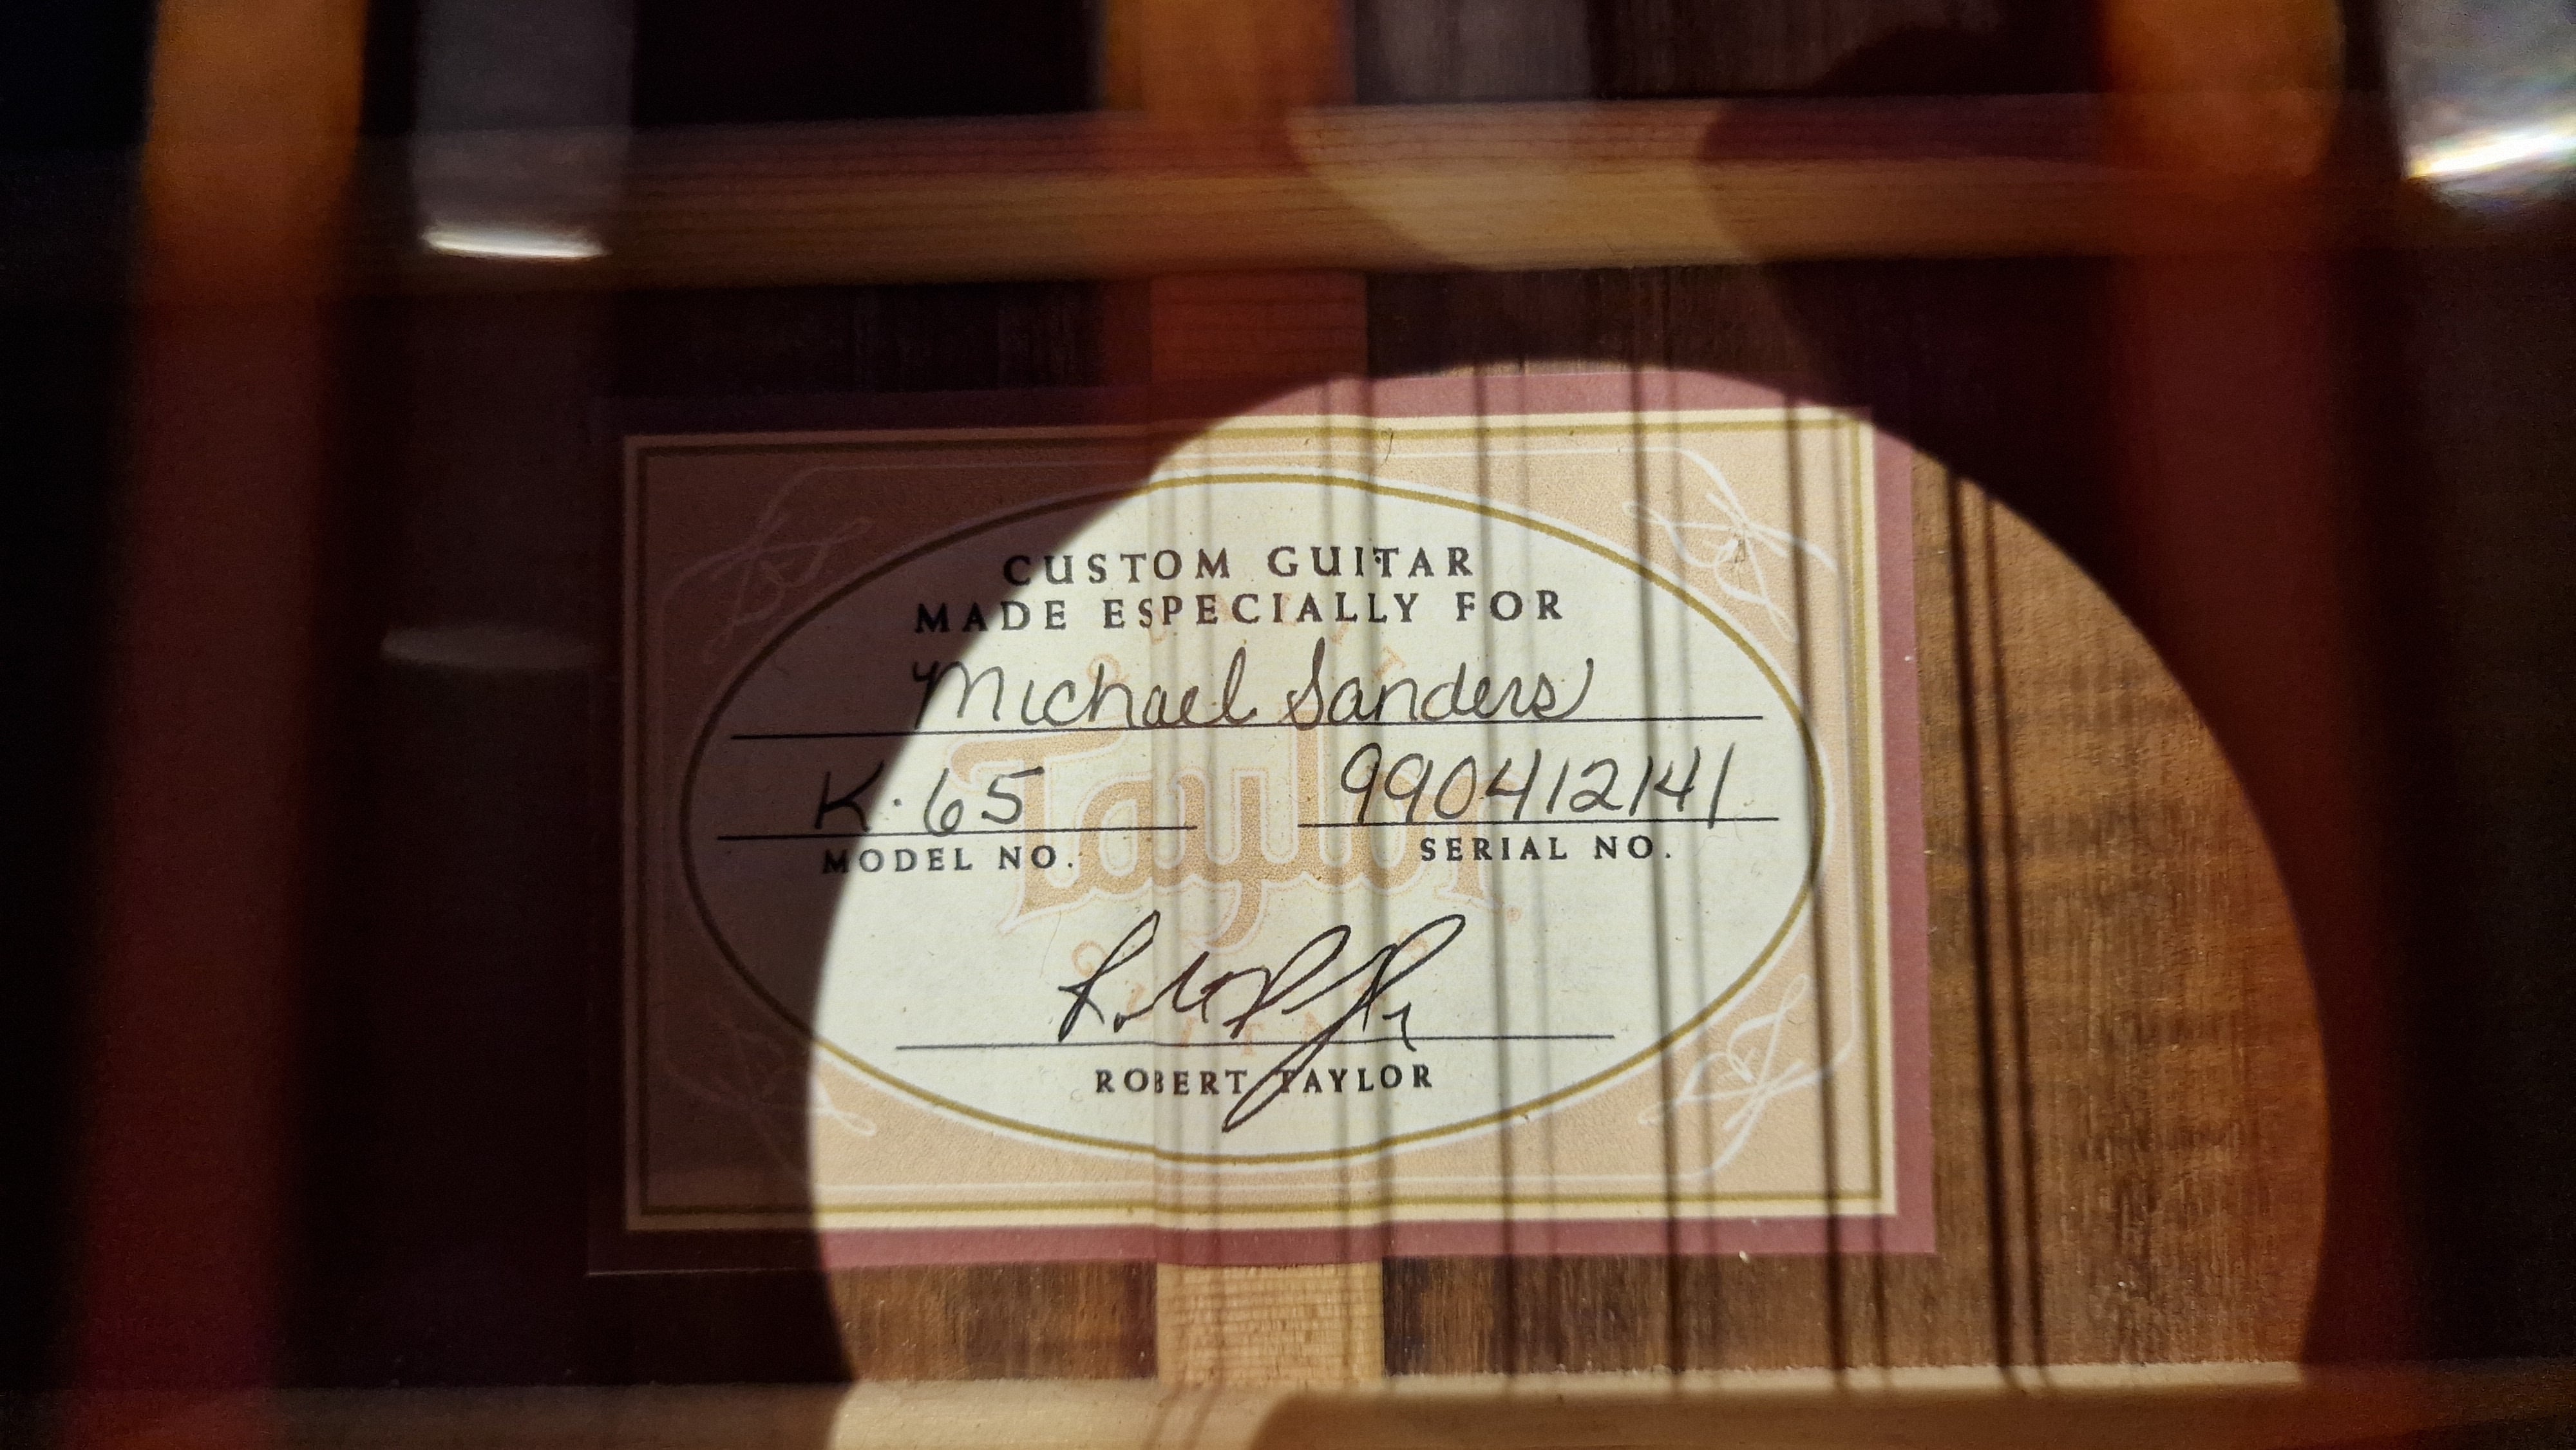 CUSTOM GUITAR
MADE ESPECIALLY FOR
Michael Sanders
K·65 990412141
MODEL NO. SERIAL NO.
Taylor
ROBERT TAYLOR